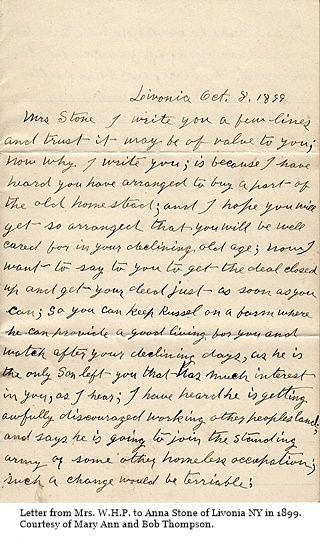 Livonia Oct. 8. 1899
Mrs Stone I write you a few lines
and trust it may be of value to you;
now why. I write you; is because I have
heard you have arranged to buy a part of
the old homestead; and I hope you will
get so arranged that you will be well
cared for in your declining old age; now I
want to say to you to get the deal closed
up and get your deed just as soon as you
can; So you can keep Russel on a farm where
he can provide a good living for you and
watch after your declining days, as he is
the only Son left you that has much interest
in you, as I hear; I have heard he is getting
awfully discouraged working other peoples land,
and says he is going to join the standing
army or some other homeless occupation;
such a change would be terriable;
Letter from Mrs. W.H.P. to Anna Stone of Livonia NY in 1899.
Courtesy of Mary Ann and Bob Thompson.